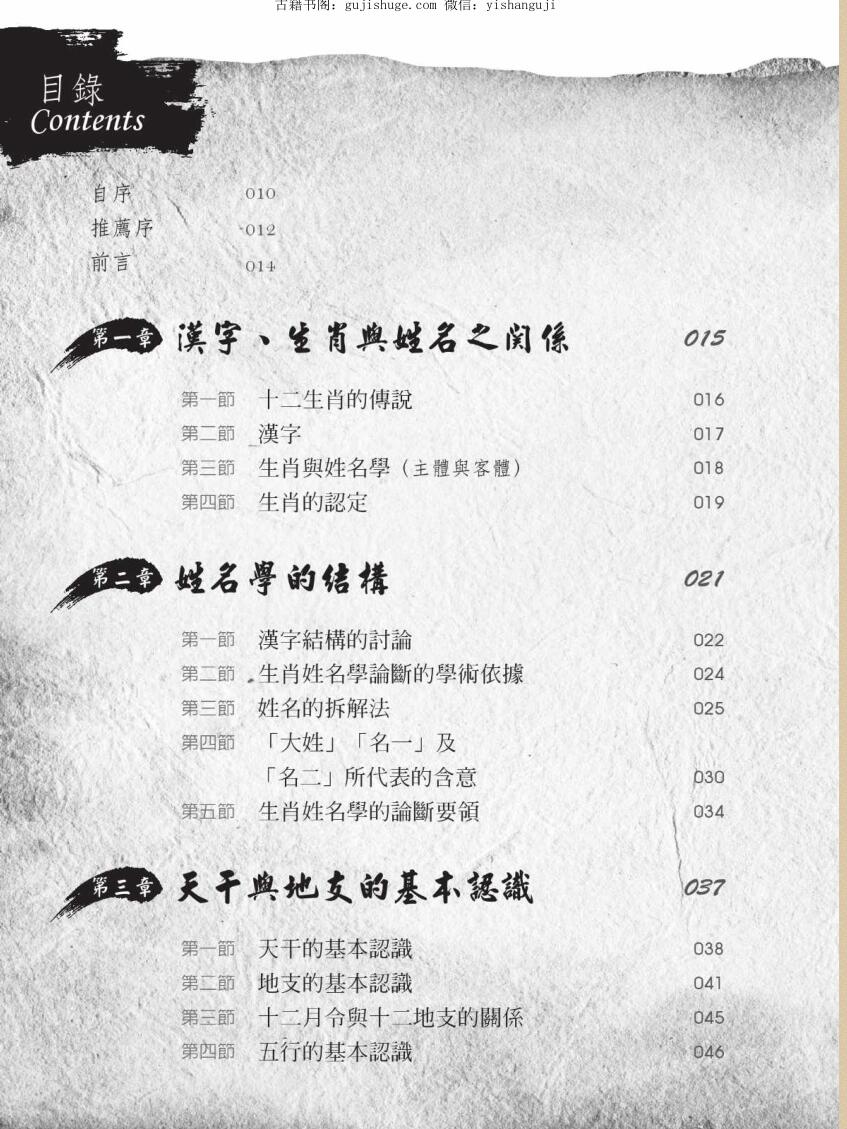 古籍书阁：gujishuge.com 微信：yishanguji
目錄
Contents
自序 010
推薦序 012
前言 014
第一章 漢字、生肖與姓名之関係 015
第一節 十二生肖的傳說 016
第二節 漢字 017
第三節 生肖與姓名學（主體與客體） 018
第四節 生肖的認定 019
第二章 姓名學的结構 021
第一節 漢字結構的討論 022
第二節 生肖姓名學論斷的學術依據 024
第三節 姓名的拆解法 025
第四節 「大姓」「名一」及
「名二」所代表的含意 030
第五節 生肖姓名學的論斷要領 034
第三章 天干與地支的基本認識 037
第一節 天干的基本認識 038
第二節 地支的基本認識 041
第三節 十二月令與十二地支的關係 045
第四節 五行的基本認識 046